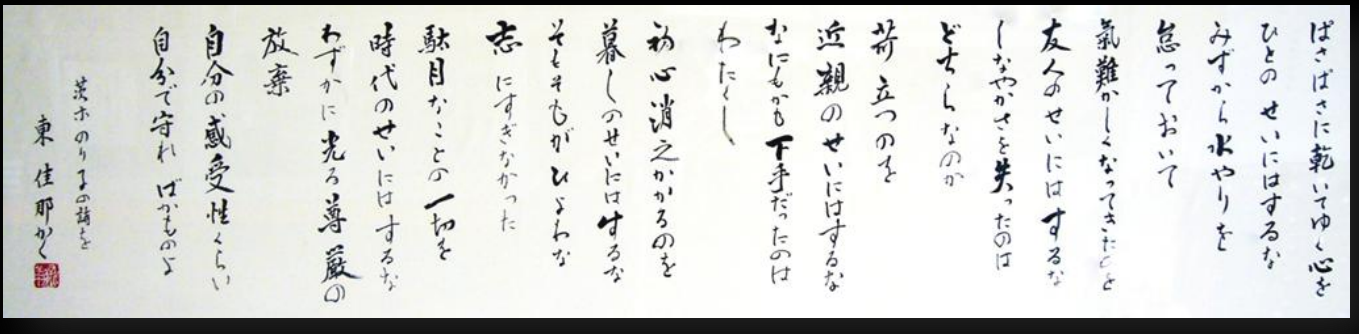 ぱさぱさに乾いてゆく心を
ひとのせいにはするな
みずから水やりを
怠っておいて
氣難かしくなってきたのを
友人のせいにはするな
しなやかさを失ったのは
どちらなのか
苛立つのを
近親のせいにはするな
なにもかも下手だったのは
わたくし
初心消えかかるのを
暮しのせいにはするな
そもそもがひよわな
志にすぎなかった
駄目なことの一切を
時代のせいにはするな
わずかに光る尊厳の
放棄
自分の感受性くらい
自分で守れ ばかものよ
茨木のり子の詩を
東佳那かく